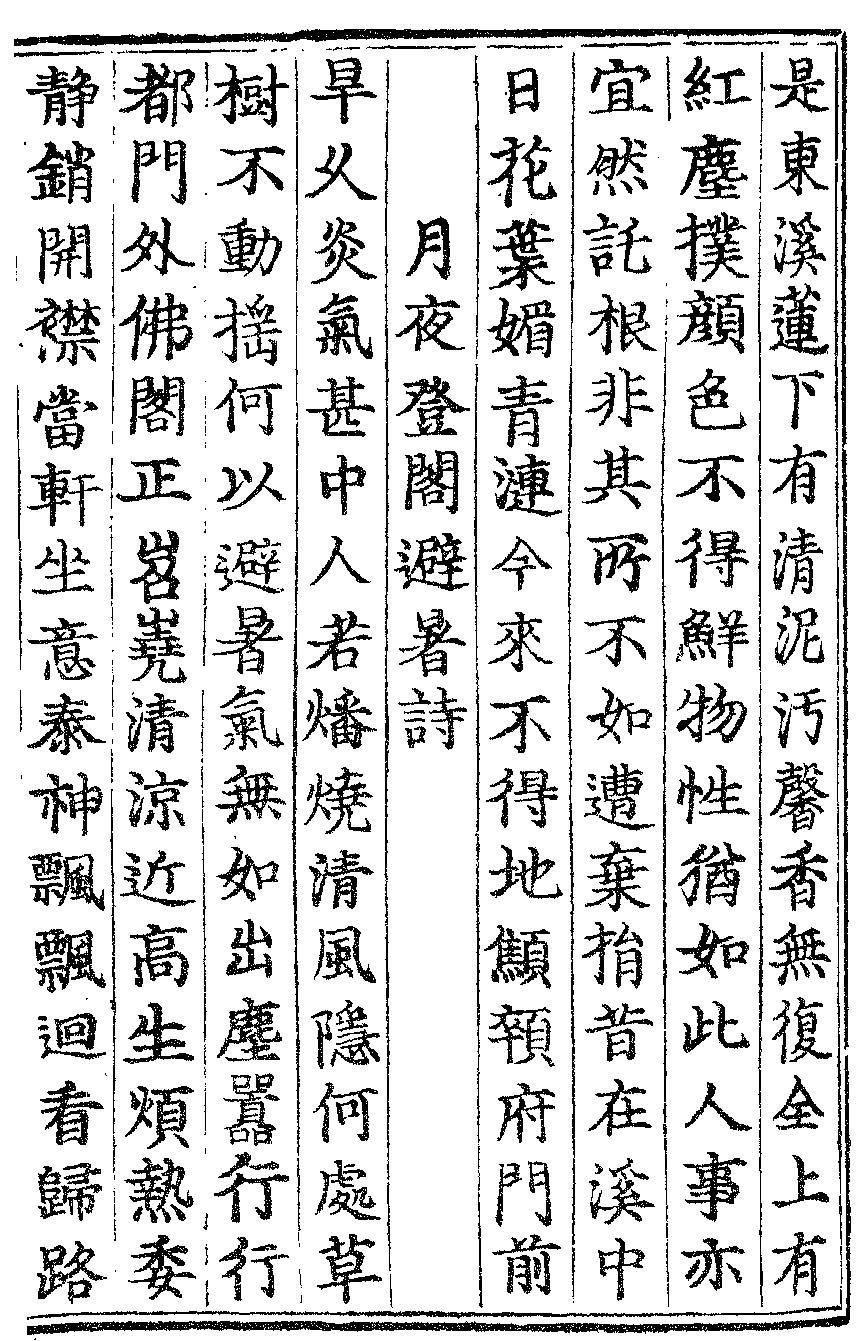 是東溪蓮下有清泥汚馨香無復全上有
紅塵撲顔色不得鮮物性猶如此人事亦
宜然託根非其所不如遭棄捐昔在溪中
日花葉媚青漣今來不得地顦顇府門前
月夜登閣避暑詩
旱久炎氣甚中人若燔燒清風隱何處草
樹不動揺何以避暑氣無如出塵囂行行
都門外佛閣正岧嶤清涼近高生煩熱委
静銷開襟當軒坐意泰神飄飄迴看歸路